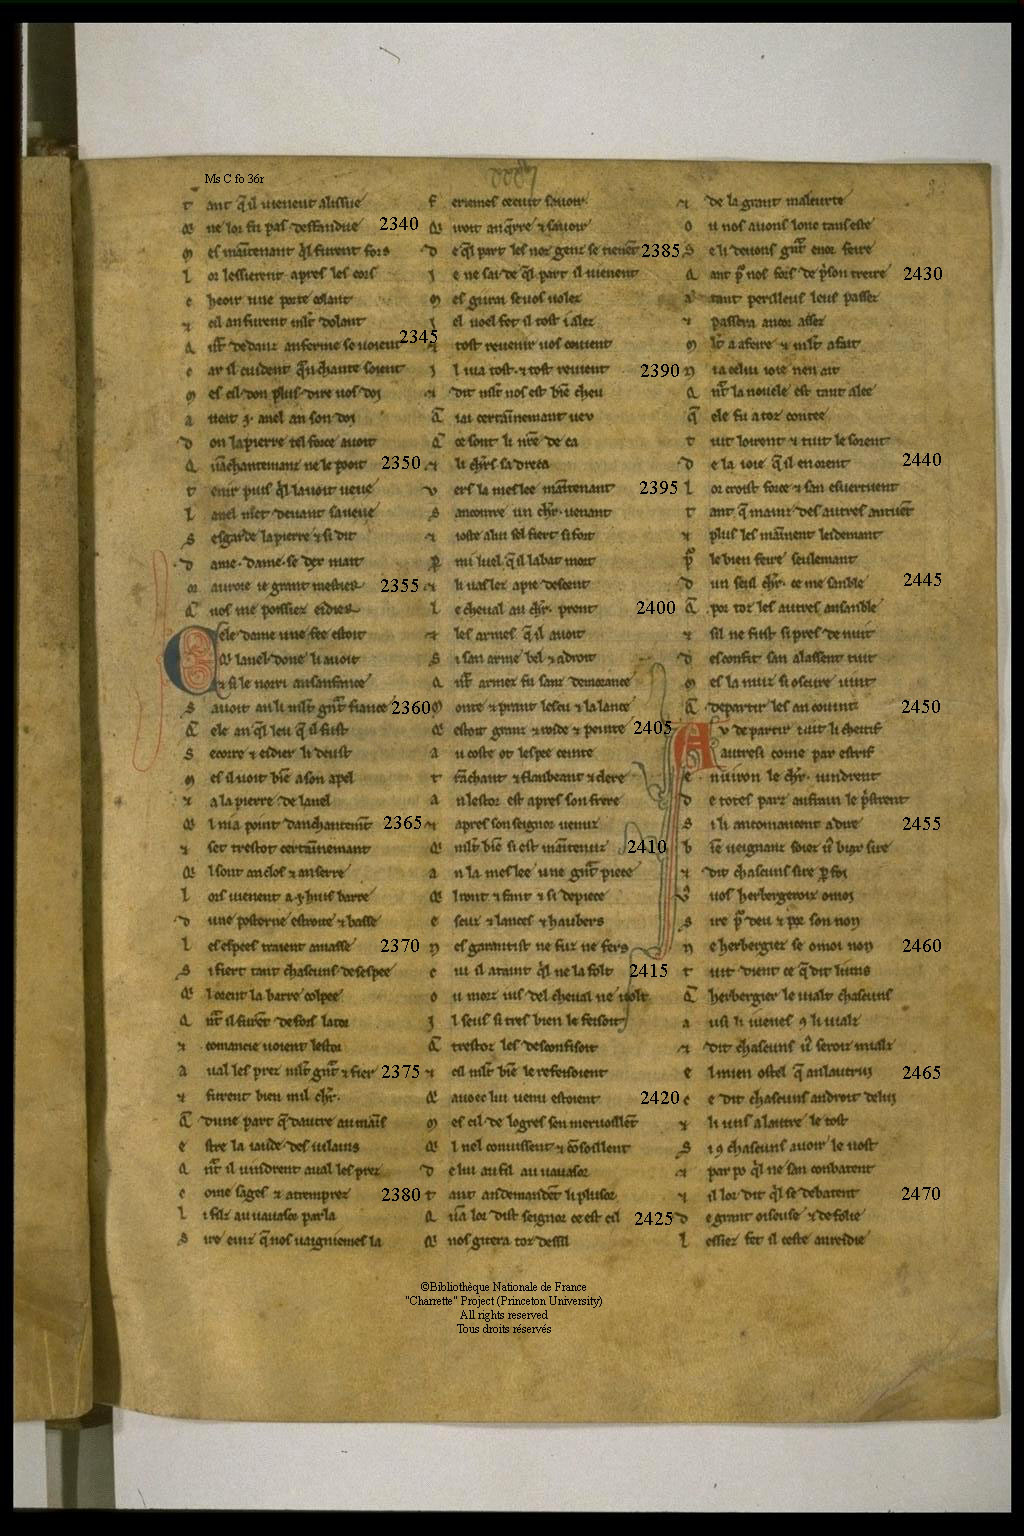 Ms C fo 36r
t ant q̃ il uienent alissue
Q ne lor fu pas deffandue 2340
m es maintenant q̃l furent fors
l or lessierent apres les cors
c heoir une porte colant
⁊ cil an furent mlt dolant
Q nt dedanz anferme se uoient 2345
c ar il cuident qu anchante soient
m es cil don plus dire uos doi
a uoit .i. anel an son doi
D on la pierre tel force auoit
Q uanchantemanz ne le pooit 2350
t enir puis q̃l lauoit ueue
l anel met deuant sa ueue
S esgarde la pierre ⁊ si dit
D ame dame se dex mait
or auroie ie grant mestier 2355
Q uos me poissiez eidier
Cele dame une fee estoit
Q lanel done li auoit
⁊ si le norri an sanfance
s auoit an li mlt gñt fiance 2360
Q ele an q̃l leu q̃ il fust
S ecorre ⁊ eidier li deust
m es il uoit bñ a son apel
⁊ a la pierre de lanel
Q l nia point danchantemt 2365
⁊ set trestot certainnemant
Q l sont anclos ⁊ anserre
L ors uienent a .i. huis barre
D une posterne estroite ⁊ basse
l es espees traient amasse 2370
S i fiert tant chascuns de sespee
Q l orent la barre colpee
Q nt il furẽt defors la tor
⁊ comancie uoient lestor
a ual les prez mlt gñt ⁊ fier 2375
⁊ furent bien mil chr.
Q dune part q̃ dautre au mains
e stre la iaude des uilains
Q nt il uindrent aual les prez
c ome sages ⁊ atemprez 2380
l i filz au uauasor parla
S ire einz q̃ nos uaigniemes la
F eriemes ce cuit sauoir
Q iroit anq̃rre ⁊ sauoir
D e q̃l part les noz genz se tienẽt 2385
J e ne sai de q̃l part il uienent
m es girai se uos uolez
J el uoel fet il tost i alez
⁊ tost reuenir uos couient
J l i ua tost ⁊ tost reuient 2390
⁊ dit mlt nos est bñ cheu
Q iai certainnemant ueu
Q ce sont li nr̃e de ca
⁊ li chrs sadreca
v ers la meslee maintenant 2395
S ancontre un chr. uenant
⁊ ioste a lui sel fiert si fort
p mi luel q̃ il labat mort
⁊ li uaslez a pie descent
l e cheual au chr. prent 2400
⁊ les armes q̃ il auoit
S i san arme bel ⁊ adroit
Q nt armez fu sanz demorance
m onte ⁊ prant lescu ⁊ la lance
Q estoit granz ⁊ roide ⁊ peinte 2405
a u coste ot lespee ceinte
t ranchant ⁊ flanbeant ⁊ clere
a n lestor est apres son frere
⁊ apres son seignor uenuz
Q mlt bñ si est maintenuz 2410
a n la meslee une gñt piece
Q l ront ⁊ fant ⁊ si depiece
e scuz ⁊ lances ⁊ haubers
n es garantist ne fuz ne fers
c ui il ataint q̃l ne lafolt 2415
o u morz uis del cheual ne uolt
J l seus si tres bien le feisoit
Q trestoz les desconfisoit
⁊ cil mlt bñ le refeisoient
Q auoec lui uenu estoient 2420
m es cil de logres sen meruoillẽt
Q l nel conuissent ⁊ cõsoillent
D e lui au fil au uauasor
t ant an demandẽt li plusor
Q ua lor dist seignor ce est cil 2425
Q nos gitera toz dessil
⁊ de la grant maleurte
o u nos auons lonc tans este
S e li deuons gñt enor feire
Q ant p̃ nos fors de p̃son treire 2430
a tant perilleus leus passez
⁊ passera ancor assez
m lt a a feire ⁊ mlt a fait
n ia celui ioie nen ait
Q nt la nouele est tant alee
q̃ ele fu a toz contee
t uit loirent ⁊ tuit le sorent
D e la ioie q̃ il en orent 2440
l or croist force ⁊ san esuertuent
t ant q̃ mainz des autres antuẽt
⁊ plus les mainnent leidemant
p̃ le bien feire seulemant
D un seul chr. ce me sanble 2445
Q por toz les autres ansanble
⁊ sil ne fust si pres de nuit
D esconfit san alassent tuit
m es la nuiz si oscure uint
Q departir les an couint 2450
Au departir tuit li cheitif
autresi come par estrif
e nuiron le chr. uindrent
D e totes parz au frain le p̃strent
S i li ancomancent a dire 2455
b iẽ ueignanz soiez ũ biax sire
⁊ dit chascuns sire p̃ foi
v̾ uos herbergeroiz o moi
S ire p̃ deu ⁊ por son non
n e herbergiez se o moi non 2460
t uit dient ce q̃ dit li uns
Q herbergier le uialt chascuns
a usi li iuenes 9 li uialz
⁊ dit chascuns ũ seroiz mialz
e l mien ostel q̃ an lautrui 2465
c e dit chascuns androit de lui
⁊ li uns a lautre le tost
S i 9 chascuns auoir le uost
⁊ par po q̃l ne san conbatent
⁊ il lor dit q̃l se debatent 2470
D e grant oiseuse ⁊ de folie
l essiez fet il ceste anreidie
©Bibliothèque Nationale de France
"Charrette" Project (Princeton University)
All rights reserved
Tous droits réservés